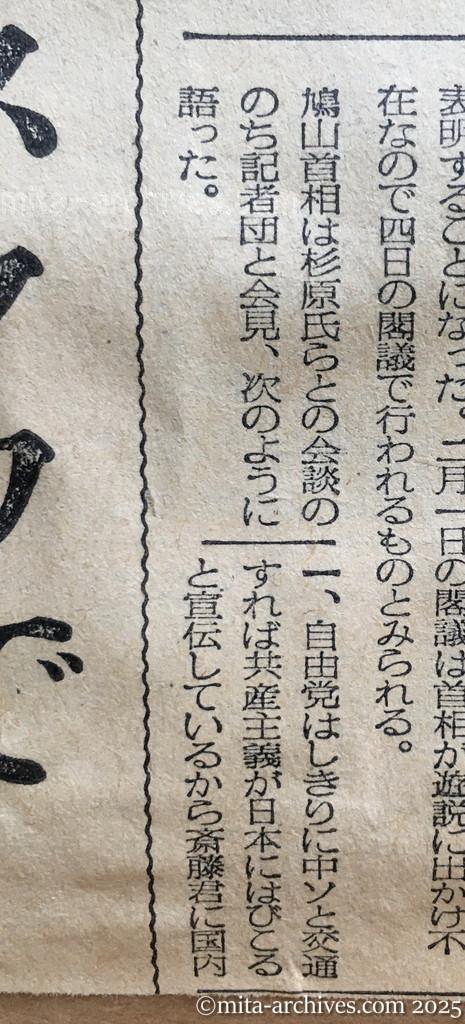 表明することになった。二月一日の閣議は首相が遊説に出かけ不
在なので四日の閣議で行われるものとみられる。
鳩山首相は杉原氏らとの会談の
のち記者団と会見、次のように
語った。
一、自由党はしきりに中ソと交通
すれば共産主義が日本にはびこる
と宣伝しているから斎藤君に国内
で
©mita-archives.com 2025